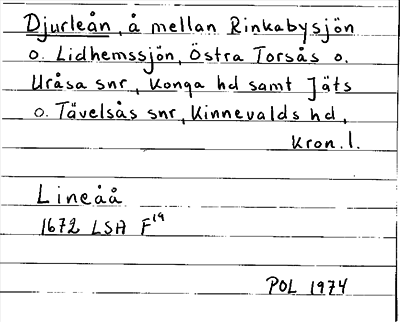 Djurleån, å mellan Rinkabysjön
o. Lidhemssjön, Östra Torsås o.
Uråsa snr, Konga hd samt Jäts
o. Tävelsås snr, Kinnevalds hd,
Kron. l.
Lineåå
1672 LSA F¹⁹
POL 1974